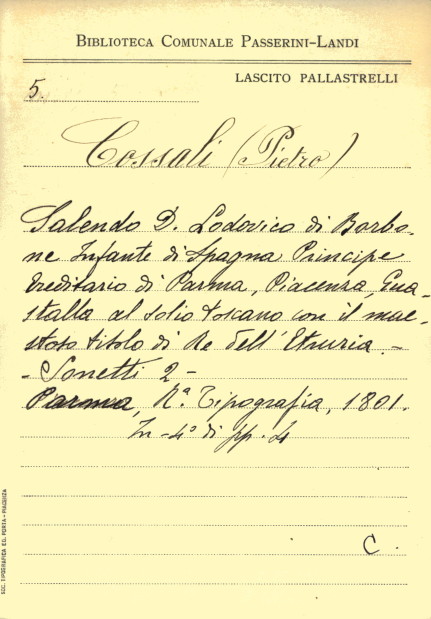 BIBLIOTECA COMUNALE PASSERINI-LANDI
LASCITO PALLASTRELLI
5.
Cossali (Pietro)
Salendo D. Lodovico di Borbo-
ne Infante di Spagna Principe
Ereditario di Parma, Piacenza, Gua-
stalla al solio toscano con il mae-
stoso titolo di Re dell'Etruria.-
- Sonetti 2 -
Parma, Rª Tipografia, 1801.
In-4° di pp. 4
C.
SOC. TIPOGRAFICA ED. PORTA - PIACENZA